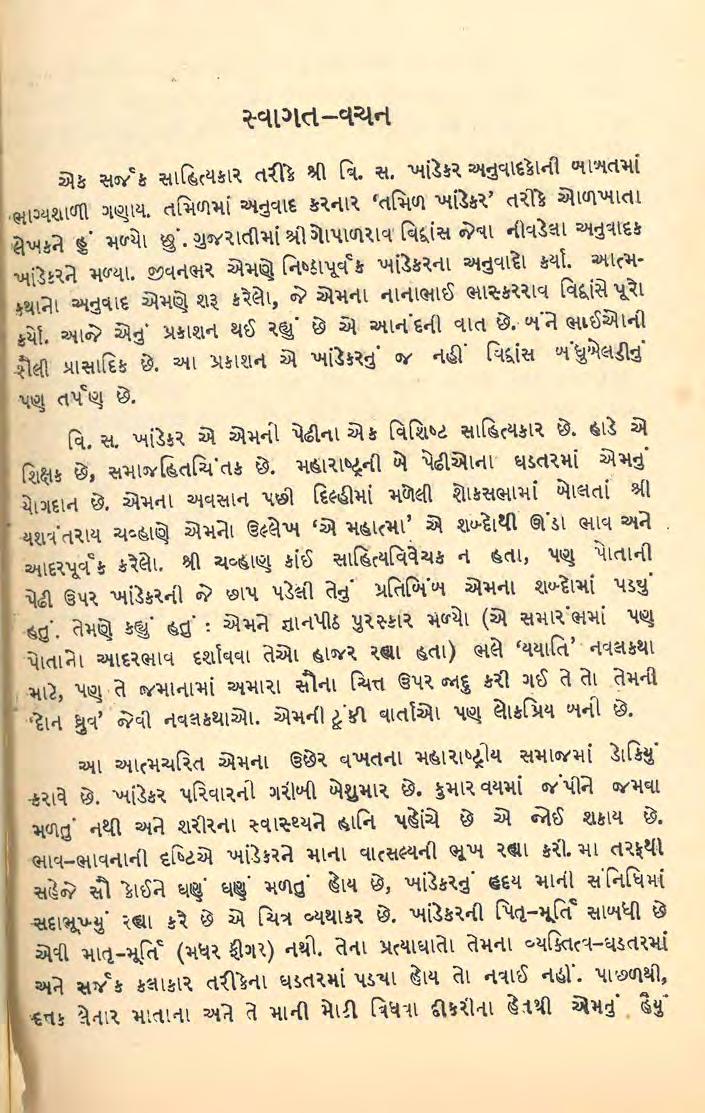 સ્વાગત–વચન
એક સર્જક સાહિત્યકાર તરીકે શ્રી વિ. સ. ખાંડેકર અનુવાદકોની બાબતમાં
ભાગ્યશાળી ગણાય. તમિળમાં અનુવાદ કરનાર ‘તમિળ ખાંડેકર’ તરીકે ઓળખાતા
લેખકને હું મળ્યો છું. ગુજરાતીમાં શ્રી ગોપાળરાવ વિદ્વાંસ જેવા નીવડેલા અનુવાદક
ખાંડેકરને મળ્યા. જીવનભર એમણે નિષ્ઠાપૂર્વક ખાંડેકરના અનુવાદો કર્યા. આત્મ-
કથાનો અનુવાદ એમણે શરૂ કરેલો, જે એમના નાનાભાઈ ભાસ્કરરાવ વિદ્વાંસે પૂરો
કર્યો. આજે એનું પ્રકાશન થઈ રહ્યું છે એ આનંદની વાત છે. બંને ભાઈઓની
શૈલી પ્રાસાદિક છે. આ પ્રકાશન એ ખાંડેકરનું જ નહીં વિદ્વાંસ બંધુબેલડીનું
પણ તર્પણ છે.
વિ. સ. ખાંડેકર એ એમની પેઢીના એક વિશિષ્ટ સાહિત્યકાર છે. હાડે એ
શિક્ષક છે, સમાજહિતચિંતક છે. મહારાષ્ટ્રની બે પેઢીઓના ઘડતરમાં એમનું
યોગદાન છે. એમના અવસાન પછી દિલ્હીમાં મળેલી શોકસભામાં બોલતાં શ્રી
યશવંતરાય ચવ્હાણે એમનો ઉલ્લેખ ‘એ મહાત્મા’ એ શબ્દોથી ઊંડા ભાવ અને
આદરપૂર્વક કરેલો. શ્રી ચવ્હાણ કાંઈ સાહિત્યવિવેચક ન હતા, પણ પોતાની
પેઢી ઉપર ખાંડેકરની જે છાપ પડેલી તેનું પ્રતિબિંબ એમના શબ્દોમાં પડયું
હતું. તેમણે કહ્યું હતું : એમને જ્ઞાનપીઠ પુરસ્કાર મળ્યો (એ સમારંભમાં પણ
પોતાનો આદરભાવ દર્શાવવા તેઓ હાજર રહ્યા હતા) ભલે ‘યયાતિ’ નવલકથા
માટે, પણ તે જમાનામાં અમારા સૌના ચિત્ત ઉપર જાદુ કરી ગઈ તે તો તેમની
‘દોન ધ્રુવ’ જેવી નવલકથાઓ. એમની ટૂંકી વાર્તાઓ પણ લોકપ્રિય બની છે.
આ આત્મચરિત એમના ઉછેર વખતના મહારાષ્ટ્રીય સમાજમાં ડોકિયું
કરાવે છે. ખાંડેકર પરિવારની ગરીબી બેશુમાર છે. કુમારવયમાં જંપીને જમવા
મળતું નથી અને શરીરના સ્વાસ્થ્યને હાનિ પહોંચે છે એ જોઈ શકાય છે.
ભાવ–ભાવનાની દૃષ્ટિએ ખાંડેકરને માના વાત્સલ્યની ભૂખ રહ્યા કરી. મા તરફથી
સહેજે સૌ કોઈને ઘણું ઘણું મળતું હોય છે, ખાંડેકરનું હૃદય માની સંનિધિમાં
સદાભૂખ્યું રહ્યા કરે છે એ ચિત્ર વ્યથાકર છે. ખાંડેકરની પિતૃ–મૂર્તિ સાબધી છે
એવી માતૃ–મૂર્તિ (મધર ફીગર) નથી. તેના પ્રત્યાઘાતો તેમના વ્યક્તિત્વ–ઘડતરમાં
અને સર્જક કલાકાર તરીકેના ઘડતરમાં પડયા હોય તો નવાઈ નહીં. પાછળથી,
દત્તક લેનાર માતાના અને તે માની મોટી વિધવા દીકરીના હેતથી એમનું હૈયું